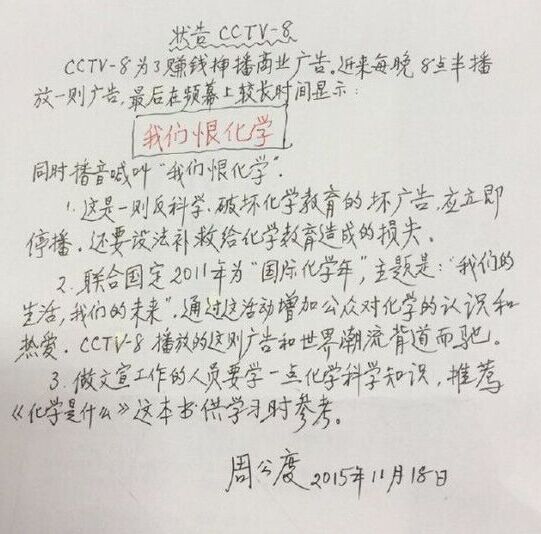 状告 CCTV-8
CCTV-8为了赚钱插播商业广告。近来每晚8点半播
放一则广告,最后在频幕上较长时间显示:
我们恨化学
同时播音喊叫“我们恨化学”.
1. 这是一则反科学、破坏化学教育的坏广告,应立即
停播,还要设法补救给化学教育造成的损失。
2. 联合国定2011年为“国际化学年”,主题是:“我们的
生活,我们的未来”,通过这活动增加公众对化学的认识和
热爱。CCTV-8播放的这则广告和世界潮流背道而驰。
3. 做文宣工作的人员要学一点化学科学知识,推荐
《化学是什么》这本书供学习时参考。
周公度 2015年11月18日